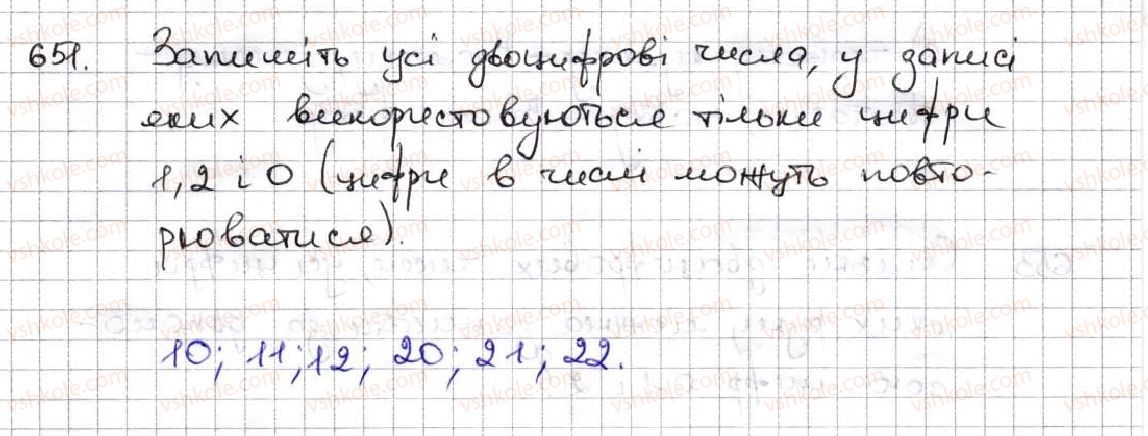 651. Запишіть усі двоцифрові числа, у записі
яких використовуються тільки цифри
1, 2 і 0 (цифри в числі можуть повто-
рюватися).
10; 11; 12; 20; 21; 22.